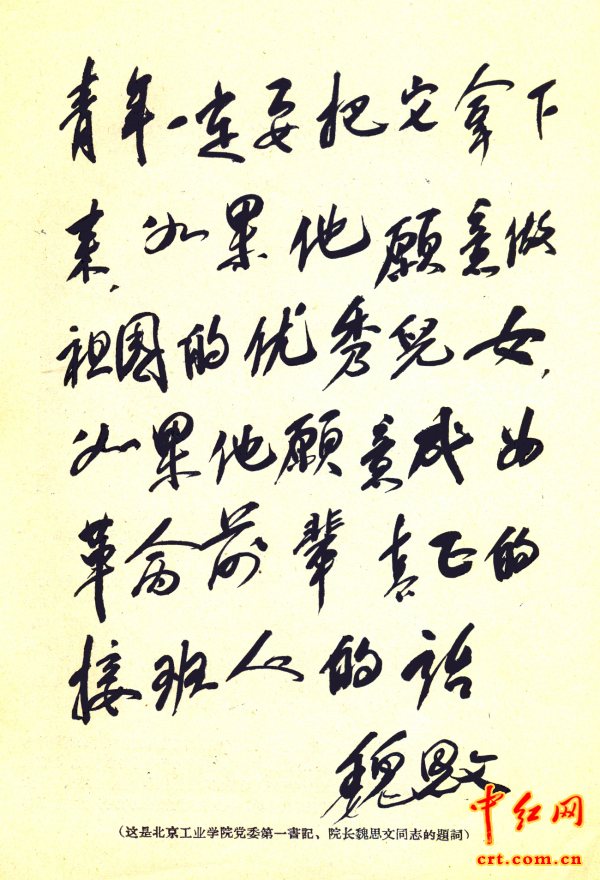 青年一定要把它拿下
来,如果他愿意做
祖国的优秀兒女,
如果他愿意成为
革命前輩真正的
接班人的話
魏思文
(这是北京工业学院党委第一書記、院长魏思文同志的題詞)
中红网
crt.com.cn